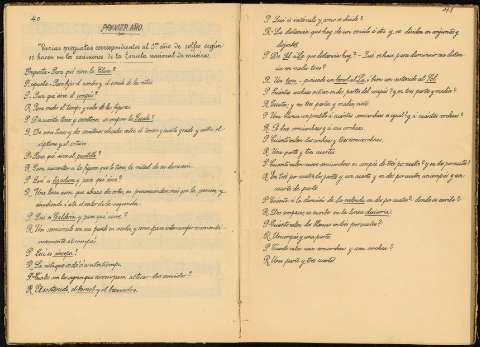 40
PRIMER AÑO
Varias preguntas correspondientes al 1er año de solfeo según
se hacen en los exámenes de la Escuela nacional de música.
Pregunta - Para qué sirve la Clave?
Respuesta - Para fijar el nombre y el sonido de las notas.
P. - Para qué sirve el compás?
R. Para medir el tiempo y valor de las figuras.
P. De cuantos tonos y semitonos se compone la Escala?
R. De cinco tonos y dos semitonos colocados entre el tercero y cuarto grado y entre el
séptimo y el octavo.
P. Para qué sirve el puntillo?
R. Para aumentar a la figura que lo tiene la mitad de su duración.
P. Qué es ligadura y para qué sirve?
R. Una línea curva que abraza dos notas, no pronunciándose más que la primera y
añadiendo a esta el valor de la segunda.
P. Qué es Calderón y para qué sirve?
R. Un semicírculo con un punto en medio y sirve para
P. Qué es síncopa?
R. La nota que está a contratiempo.
P. Cuales son los signos que sirven para alterar los sonidos?
R. El sostenido, el bemol y el becuadro.
41
P. Qué es intervalo y como se divide?
R. La distancia que hay de un sonido a otro y se dividen en conjuntos y
disjuntos.
P. De Do a Re que distancia hay? - Qué se hace para disminuir esa distancia
en medio tono?
R. Un tono - poniendo un bemol al Re, o bien un sostenido al Do.
P. Cuantas corcheas entran en dos partes del compás? y en tres partes y media?
R. Cuatro; y en tres partes y media siete.
P. Una blanca con puntillo á cuantas semicorcheas es igual? y á cuantas corcheas?
R. A doce semicorcheas y á seis corcheas.
P. Cuanto valen dos corcheas y tres semicorcheas.
R. Una parte y tres cuartos.
P. Cuanto valen nueve semicorcheas en compás de tres por cuatro? y en dos por cuatro?
R. En tres por cuatro dos partes y un cuarto y en dos por cuatro un compás y un
cuarto de parte.
P. Cuanto es la duración de la redonda en dos por cuatro? donde se escribe?
R. Dos compases; se escribe en la línea divisoria.
P. Cuanto valen dos blancas en tres por cuatro?
R. Un compás y una parte.
P. Cuanto valen cinco semicorcheas y una corchea?
R. Una parte y tres cuartos.